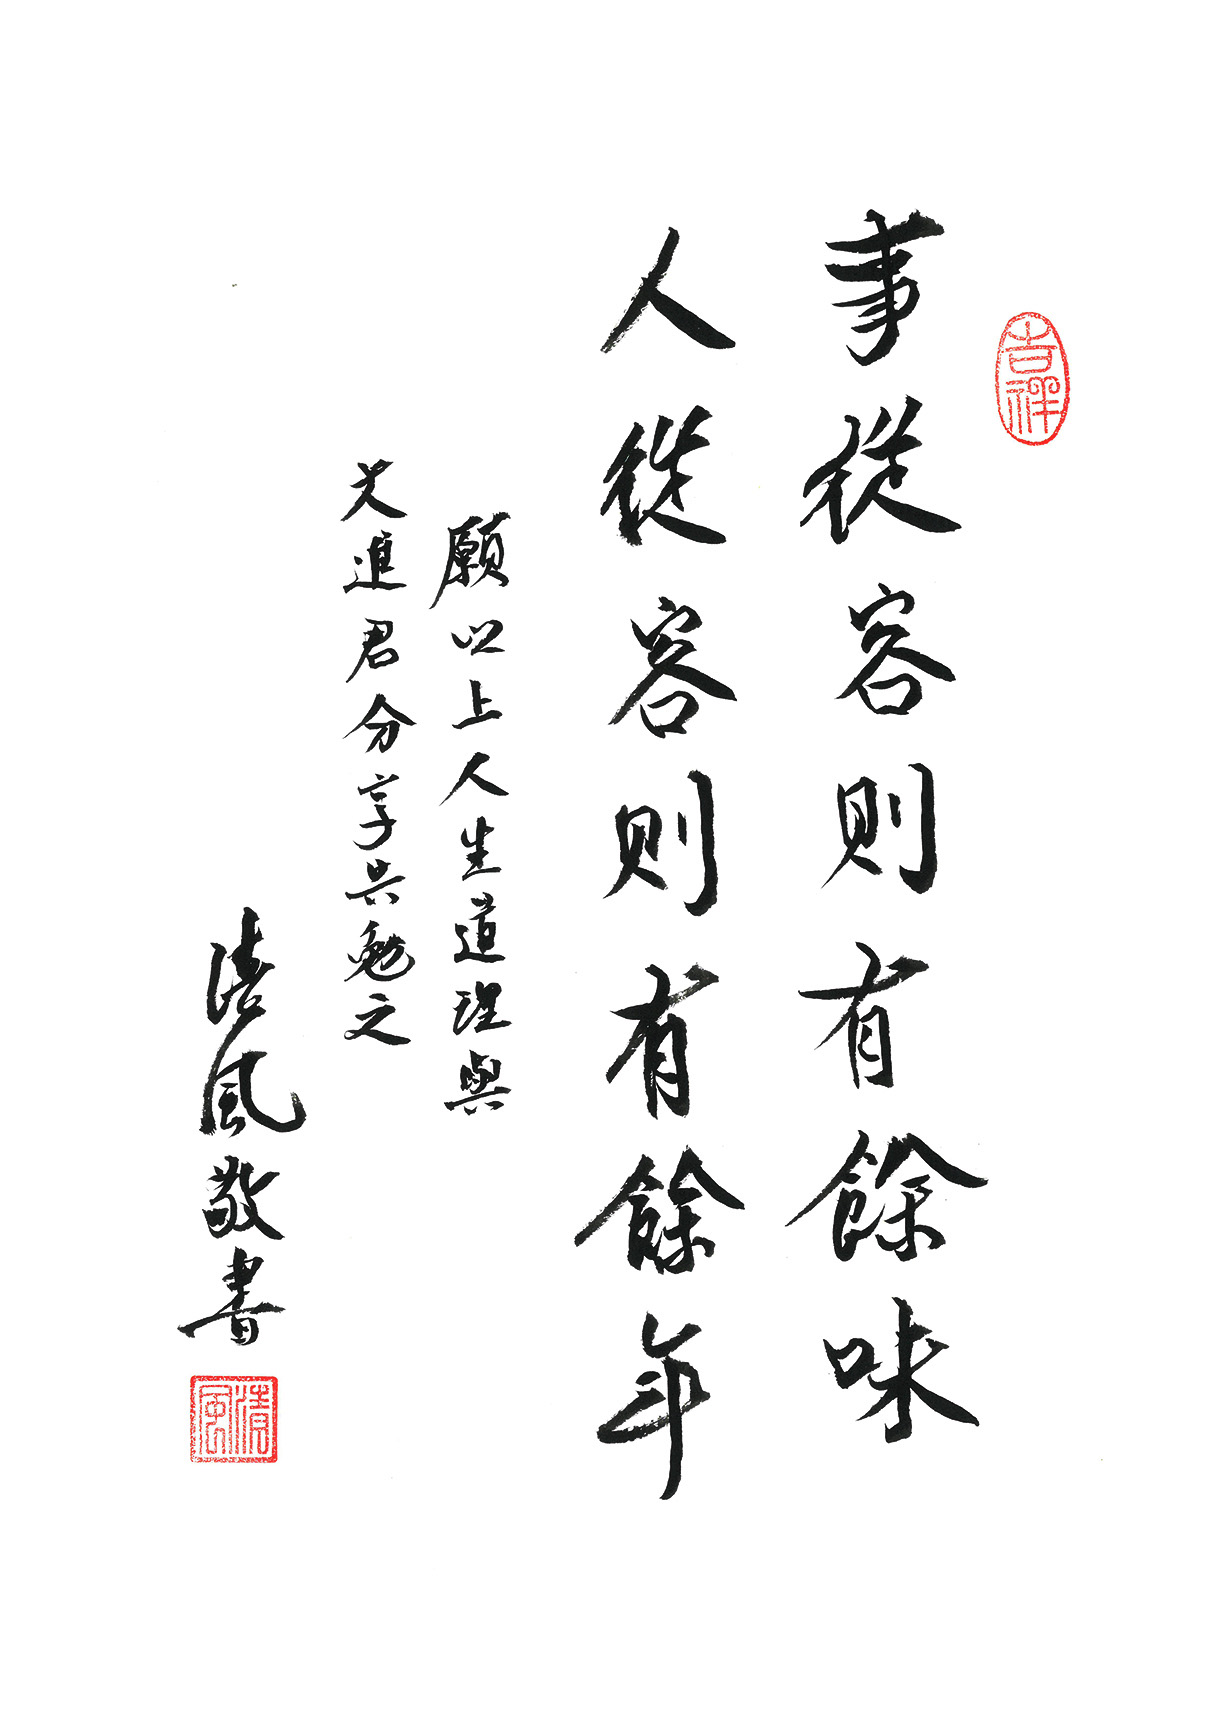 吉祥
事從容則有餘味
人從容則有餘年
願以上人生道理與
文進君分享共勉之
清風敬書
清風